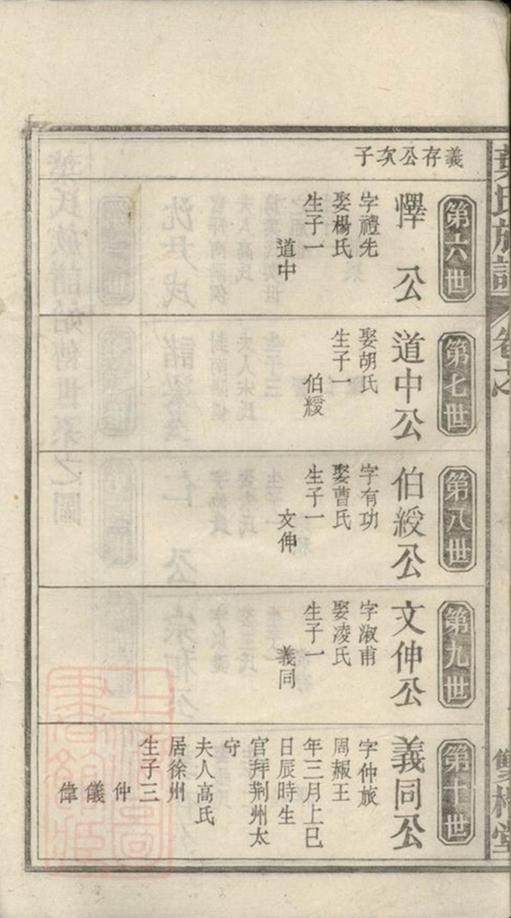 葉氏族譜
卷之
雙桂堂
義存公次子
第六世
懌公
字禮先
娶楊氏
生子一
道中
第七世
道中公
娶胡氏
生子一
伯綬
第八世
伯綬公
字有功
娶曹氏
生子一
文伸
第九世
文伸公
字淑甫
娶凌氏
生子一
義同
第十世
義同公
字仲旅
周赧王
年三月上巳
日辰時生
官拜荆州太
守
夫人高氏
居徐州
生子三
仲
儀
偉